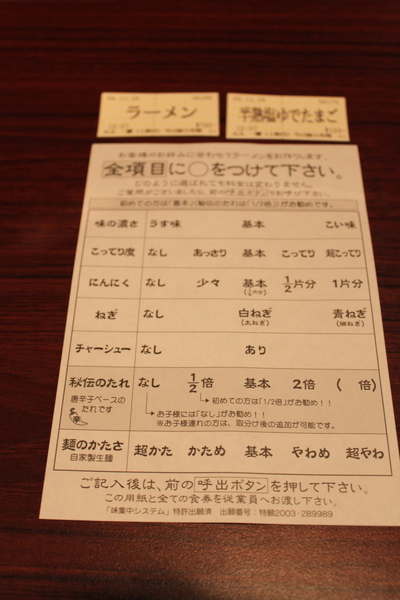 ラーメン
半熟塩ゆでたまご
お客様のお好みに合わせてラーメンをお作りします。
全項目に○をつけて下さい。
どのように選ばれても料金は変わりません。
ご質問がございましたら、前の呼出ボタンでお呼び下さい。
初めての方は「基本」「秘伝のたれは「1/2倍」」がお勧めです。
味の濃さ うす味 基本 こい味
こってり度 なし あっさり 基本 こってり 超こってり
にんにく なし 少々 基本 1/2片分 1片分
ねぎ なし 白ねぎ 青ねぎ
(太ねぎ) (細ねぎ)
チャーシュー なし あり
秘伝のたれ なし 1/2倍 基本 2倍 ( 倍)
唐辛子ベースの
たれです
初めての方は「1/2倍」がお勧め!!
お子様には「なし」がお勧め!!
※お子様連れの方は、取分け後の追加が可能です。
麺のかたさ 超かた かため 基本 やわめ 超やわ
自家製生麺
ご記入後は、前の呼出ボタンを押して下さい。
この用紙と全ての食券を従業員へお渡し下さい。
「味集中システム」特許出願済 出願番号:特願2003-289989